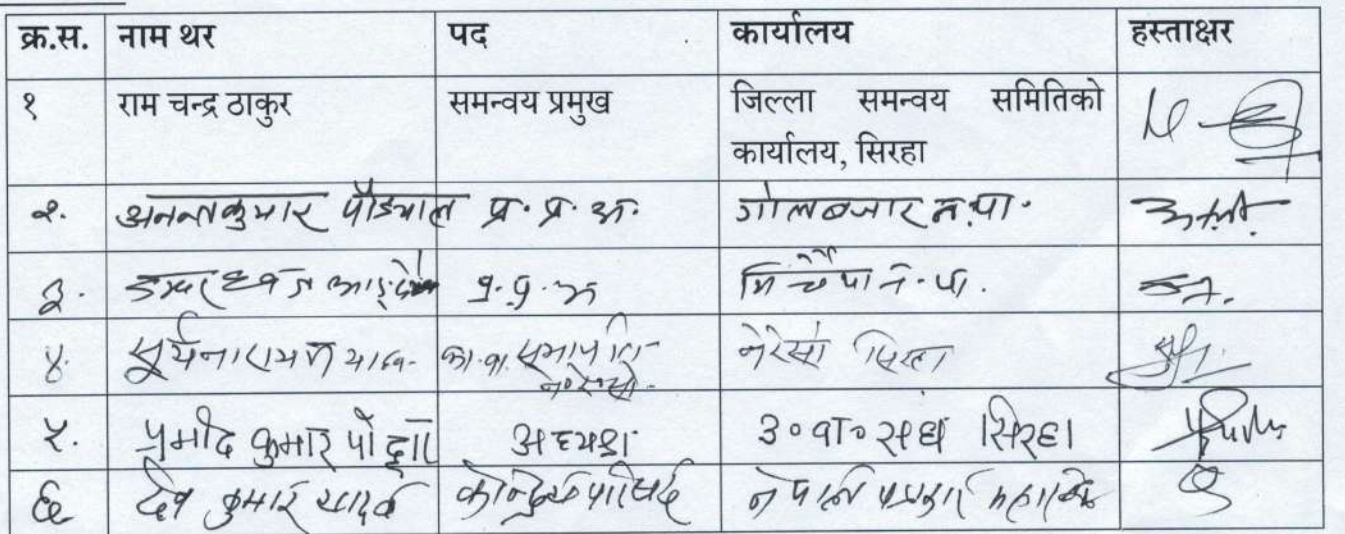 क्र.स. नाम थर पद कार्यालय हस्ताक्षर
१ राम चन्द्र ठाकुर समन्वय प्रमुख जिल्ला समन्वय समितिको
कार्यालय, सिरहा
२. अनन्तकुमार पौड्याल प्र. प्र. अ. गोलबजार न.पा.
३. प्र. प्र. अ
४. सूर्यनारायण यादव का.वा. सभापति नेरेसो सिरहा
५. प्रमोद कुमार पोद्दार अध्यक्ष उ॰वा॰संघ सिरहा
६ देव कुमार यादव नेपाल पत्रकार महासंघ